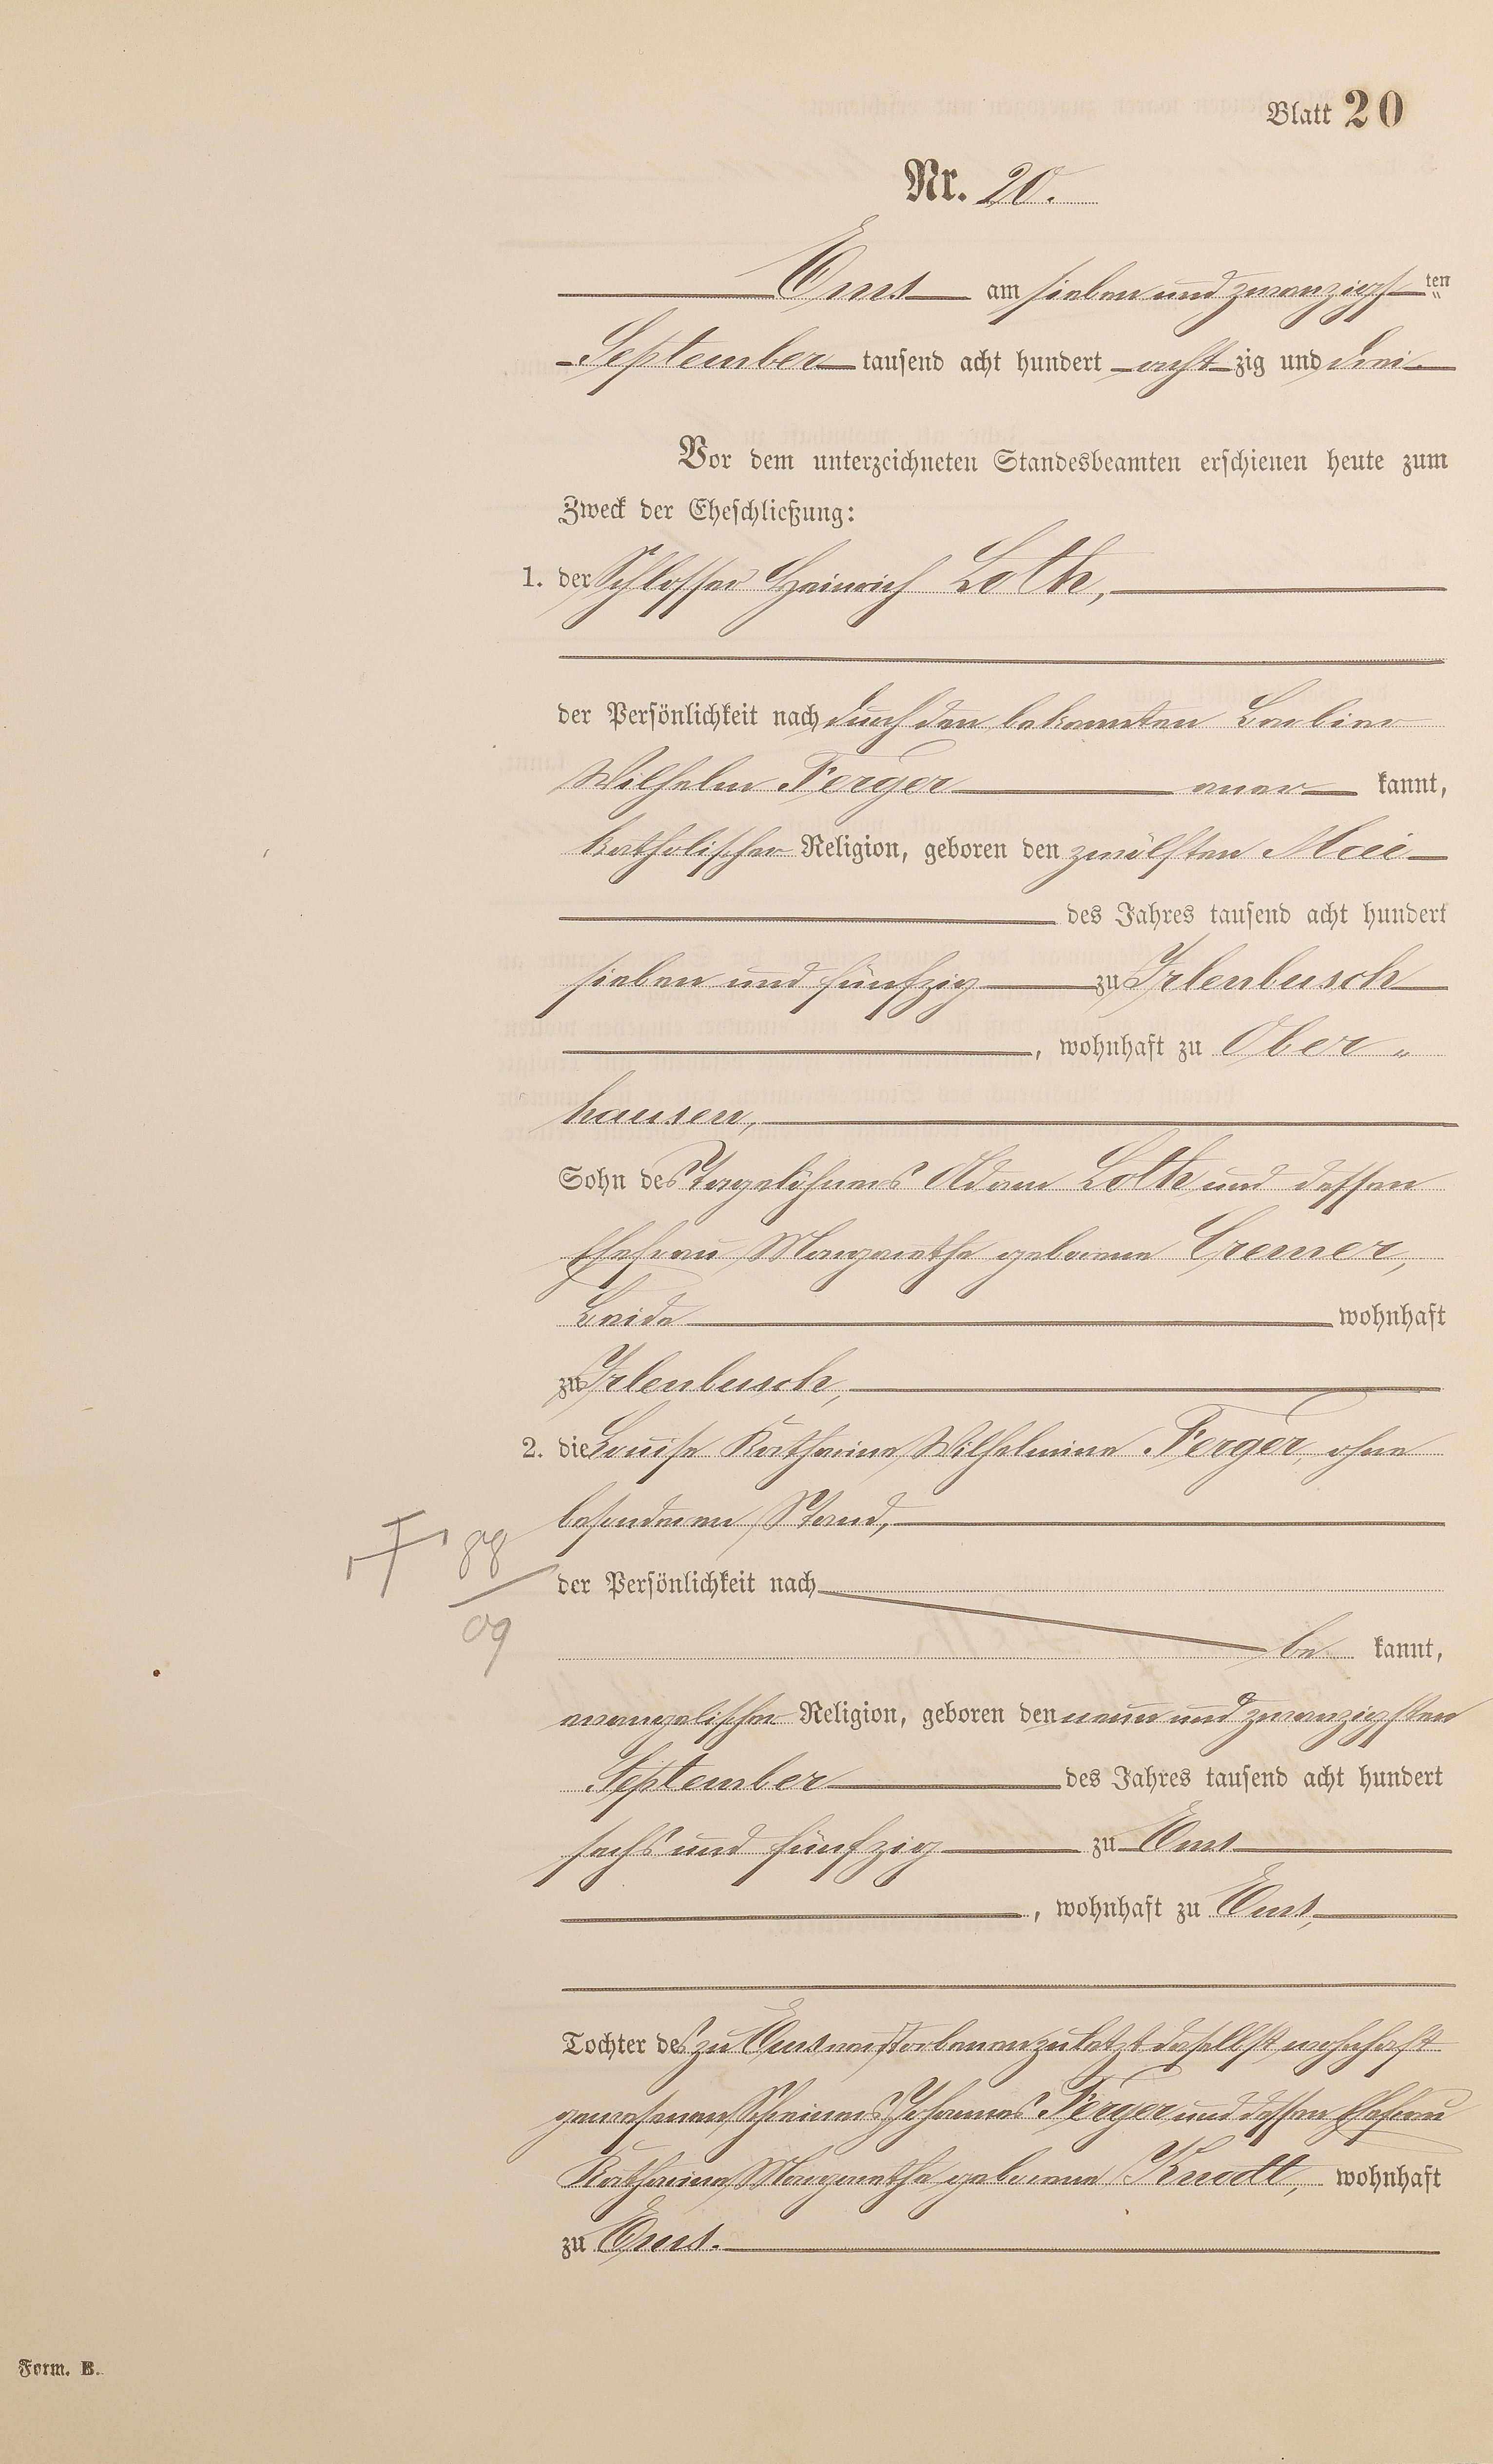 Blatt 20
Nr. 20.
Ems am sieben und zwanzigsten
September tausend acht hundert achtzig und drei
Vor dem unterzeichneten Standesbeamten erschienen heute zum
Zweck der Eheschließung:
1. der Schlosser Heinrich Loth,
der Persönlichkeit nach durch den bekannten Barbier
Wilhelm Ferger aner kannt,
katholischer Religion, geboren den zwölften Mai
des Jahres tausend acht hundert
sieben und fünfzig zu Irlenbusch
, wohnhaft zu Ober-
hausen,
Sohn des Tagelöhners Adam Loth und dessen
Ehefrau Margarethe geborene Cremer,
beide wohnhaft
zu Irlenbusch,
2. die Louise Katharine Wilhelmine Ferger, ohne
besonderen Stand,
der Persönlichkeit nach
be kannt,
evangelischer Religion, geboren den neun und zwanzigsten
September des Jahres tausend acht hundert
sechs und fünfzig zu Ems
, wohnhaft zu Ems,
Tochter des zu Ems verstorbenen zuletzt daselbst wohnhaft
gewesenen Schreiners Johannes Ferger und dessen Ehefrau
Katharine Margarethe geborene Knodt, wohnhaft
zu Ems.
88
09
Form. B.